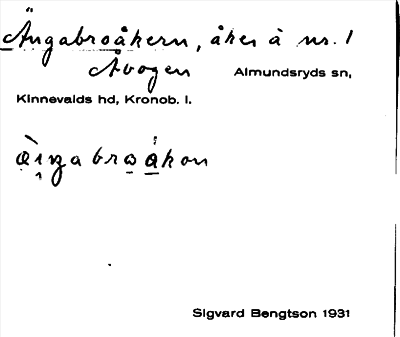 Ängabroåkern, åker å nr. 1
Åbogen Almundsryds sn,
Kinnevalds hd, Kronob. l.
æ̀ıŋabroákon
Sigvard Bengtson 1931